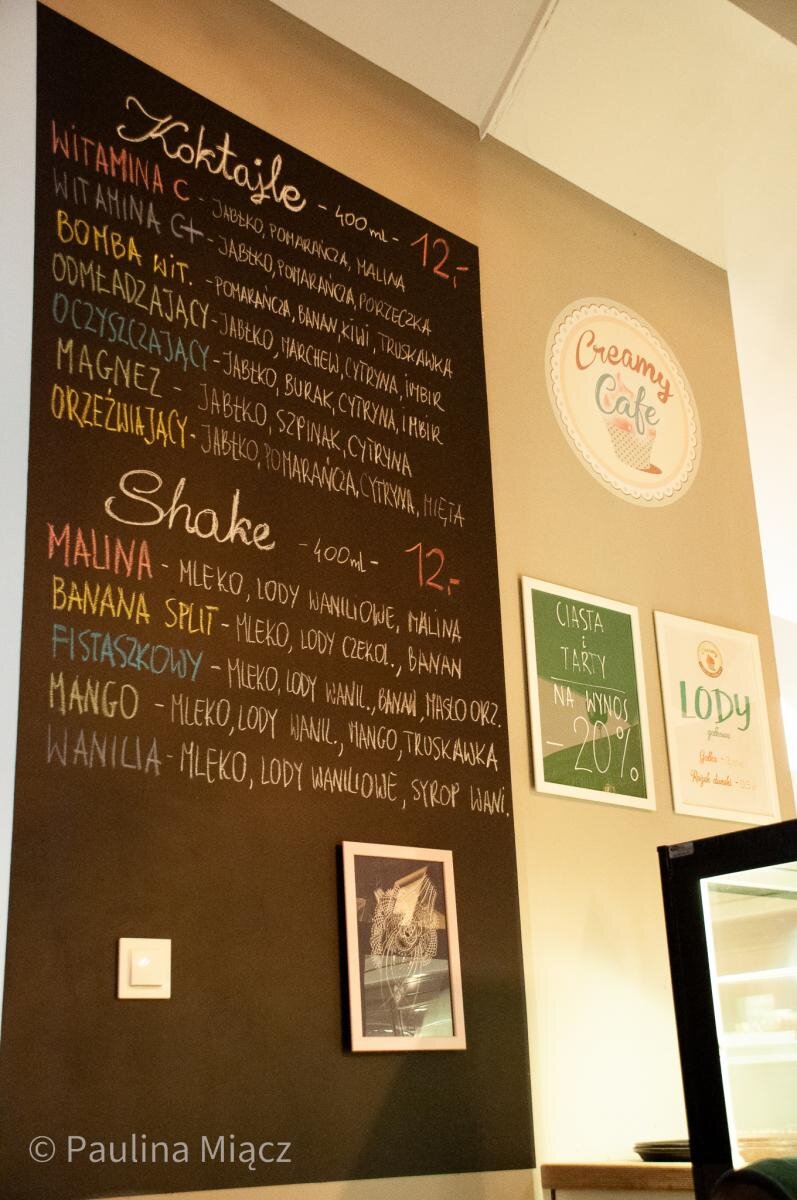 Koktajle - 400ml - 12,-
WITAMINA C - JABŁKO, POMARAŃCZA, MALINA
WITAMINA C+ - JABŁKO, POMARAŃCZA, PORZECZKA
BOMBA WIT. - POMARAŃCZA, BANAN, KIWI, TRUSKAWKA
ODMŁADZAJĄCY - JABŁKO, MARCHEW, CYTRYNA, IMBIR
OCZYSZCZAJĄCY - JABŁKO, BURAK, CYTRYNA, IMBIR
MAGNEZ - JABŁKO, SZPINAK, CYTRYNA
ORZEŹWIAJĄCY - JABŁKO, POMARAŃCZA, CYTRYNA, MIĘTA
Shake - 400ml - 12,-
MALINA - MLEKO, LODY WANILIOWE, MALINA
BANANA SPLIT - MLEKO, LODY CZEKOL., BANAN
FISTASZKOWY - MLEKO, LODY WANIL., BANAN, MASŁO ORZ.
MANGO - MLEKO, LODY WANIL., MANGO, TRUSKAWKA
WANILIA - MLEKO, LODY WANILIOWE, SYROP WANI.
Creamy
Cafe
CIASTA
i
TARTY
NA WYNOS
- 20%
LODY
gałkowe
Gałka
Rożek duński
© Paulina Miącz